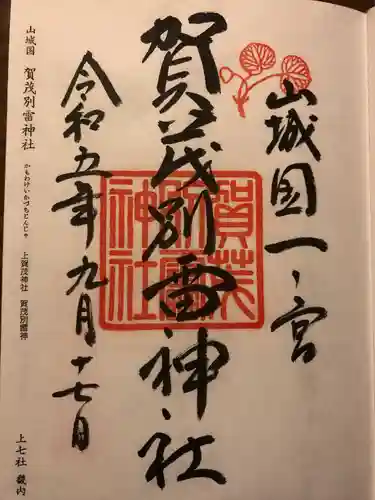 山城国一ノ宮
賀茂別雷神社
令和五年九月十七日
賀茂別雷神社
山城国 賀茂別雷神社 かもわけいかづちじんじゃ 上賀茂神社 賀茂別雷神
上七社 畿内